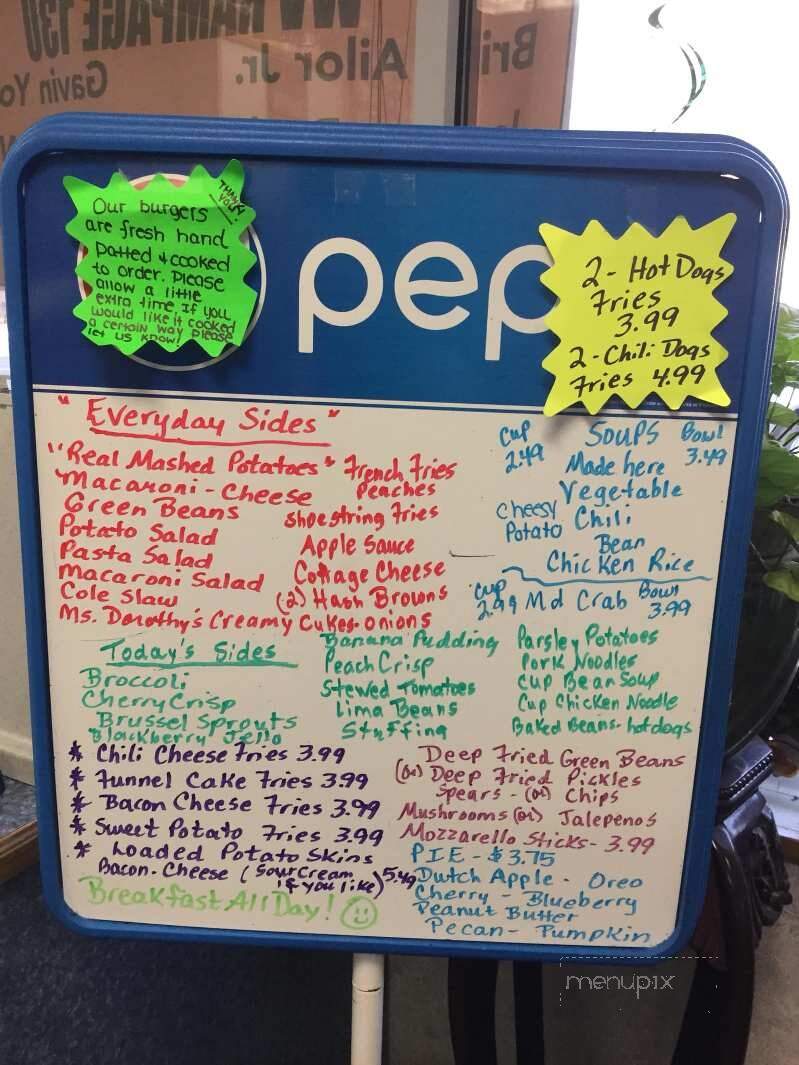 WV RAMPAGE 130
Ailor Jr.
Gavin Yo
Bri
Our burgers
are fresh hand
patted & cooked
to order. Please
allow a little
extra time If you
would like it cooked
a certain way please
let us know!
THANK
YOU!
pep
2 - Hot Dogs
Fries
3.99
2 - Chili Dogs
Fries 4.99
"Everyday Sides"
"Real Mashed Potatoes"
Macaroni - Cheese
Green Beans
Potato Salad
Pasta Salad
Macaroni Salad
Cole Slaw
Ms. Dorothy's Creamy Cukes-onions
French Fries
Peaches
Shoestring Fries
Apple Sauce
Cottage Cheese
(2) Hash Browns
Cup Soups Bowl
2.49 3.49
Made here
Vegetable
Cheesy
Potato Chili
Bean
Chicken Rice
Cup 2.99 Md Crab Bowl 3.99
Today's Sides
Broccoli
Cherry Crisp
Brussel Sprouts
Blackberry Jello
Banana Pudding
Peach Crisp
Stewed Tomatoes
Lima Beans
Stuffing
Parsley Potatoes
Pork Noodles
Cup Bean Soup
Cup Chicken Noodle
Baked Beans-hotdogs
* Chili Cheese Fries 3.99
* Funnel Cake Fries 3.99
* Bacon Cheese Fries 3.99
* Sweet Potato Fries 3.99
* Loaded Potato Skins
Bacon-Cheese (Sour Cream if you like) 5.49
Breakfast All Day!
Deep Fried Green Beans
(or) Deep Fried Pickles
Spears - (or) Chips
Mushrooms (or) Jalepenos
Mozzarello Sticks - 3.99
PIE - $3.75
Dutch Apple - Oreo
Cherry - Blueberry
Peanut Butter
Pecan - Pumpkin
menupix